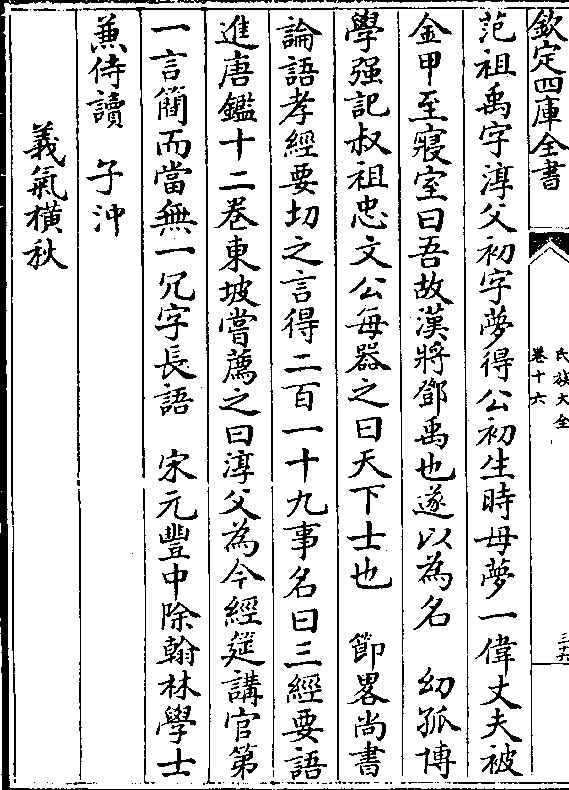 欽定四庫全書
氏族大全
卷十六
范祖禹字淳父初字夢得公初生時母夢一偉丈夫被
金甲至寢室曰吾故漢將鄧禹也遂以為名　幼孤博
學强記叔祖忠文公每器之曰天下士也　節畧尚書
論語孝經要切之言得二百一十九事名曰三經要語
進唐鑑十二卷東坡嘗薦之曰淳父為今經筵講官第
一言簡而當無一冗字長語　宋元豐中除翰林學士
兼侍讀　子沖
義氣橫秋